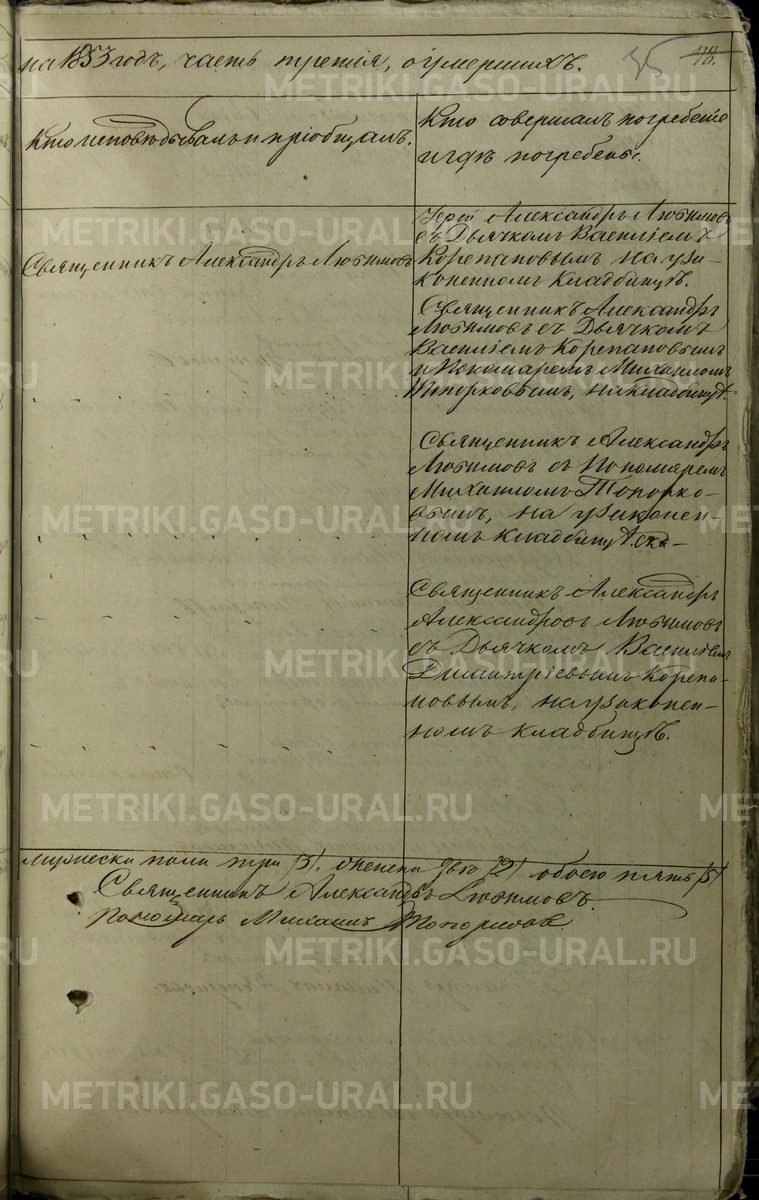 на 1853 годъ, часть третія, о умершихъ.
35
48.
Кто исповѣдывалъ и пріобщалъ.
Кто совершалъ погребеніе
и гдѣ погребены.
Священникъ Александръ Любимовъ
Іерей Александръ Любимовъ
съ Дьячкомъ Василіемъ
Корепановымъ на узаконенномъ кладбищѣ.
Священникъ Александръ
Любимовъ съ Дьячкомъ
Василіемъ Корепановымъ
и Пономаремъ Михаиломъ
Топорковымъ, на кладбищѣ.
Священникъ Александръ
Любимовъ съ Пономаремъ
Михаиломъ Топорко-
вымъ, на узаконен-
номъ кладбищѣ.
Священникъ Александръ
Александровъ Любимовъ
съ Дьячкомъ Василіемъ
Димитріевымъ Корепа-
новымъ, на узаконен-
номъ кладбищѣ.
мужеска пола три /3/. женска двѣ /2/ обоего пять /5/
Священникъ Александръ Любимовъ.
Пономарь Михаилъ Топорковъ
METRIKI.GASO-URAL.RU